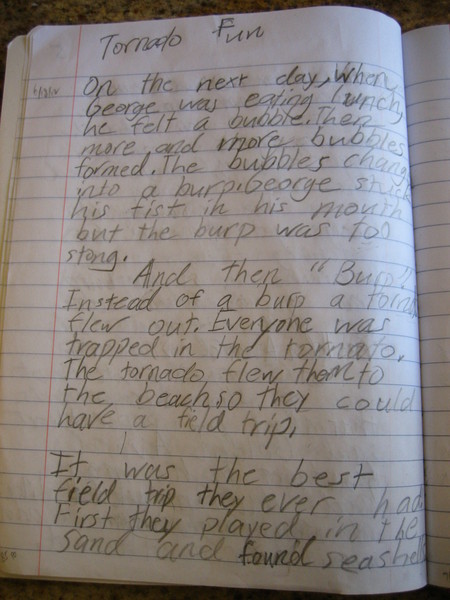 Tornado Fun
On the next day, When
George was eating lunch,
he felt a bubble. Then
more and more bubbles
formed. The bubbles chang
into a burp. George stuck
his fist in his mouth
but the burp was too
stong.
And then "Burp"
Instead of a burp a torna
flew out. Everyone was
trapped in the tornato.
The tornado flew them to
the beach so they could
have a field trip.
It was the best
field trip they ever had.
First they played in the
sand and found seashell